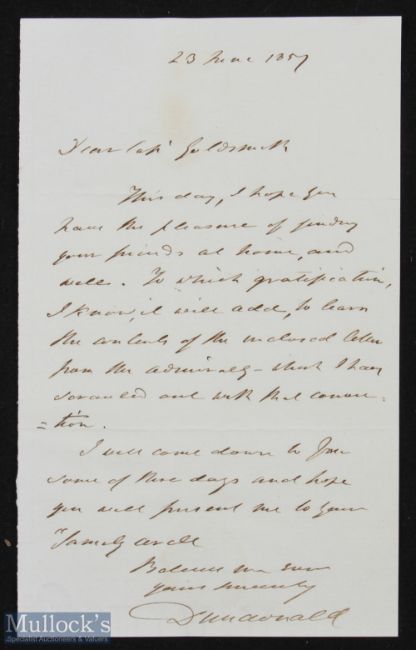 23 June 1857
Dear Capt Goldsmith
This day, I hope you
have the pleasure of finding
your friends at home, and
well. To which gratification,
I know, it will add, to learn
the contents of the inclosed letter
from the admiralty – which I have
out with that
=tion.
I will come down to you
some of these days and hope
you will present me to your
Family circle
Believe me ever
yours sincerely
Dundonald
Mullock's
Specialist Auctioneers & Valuers